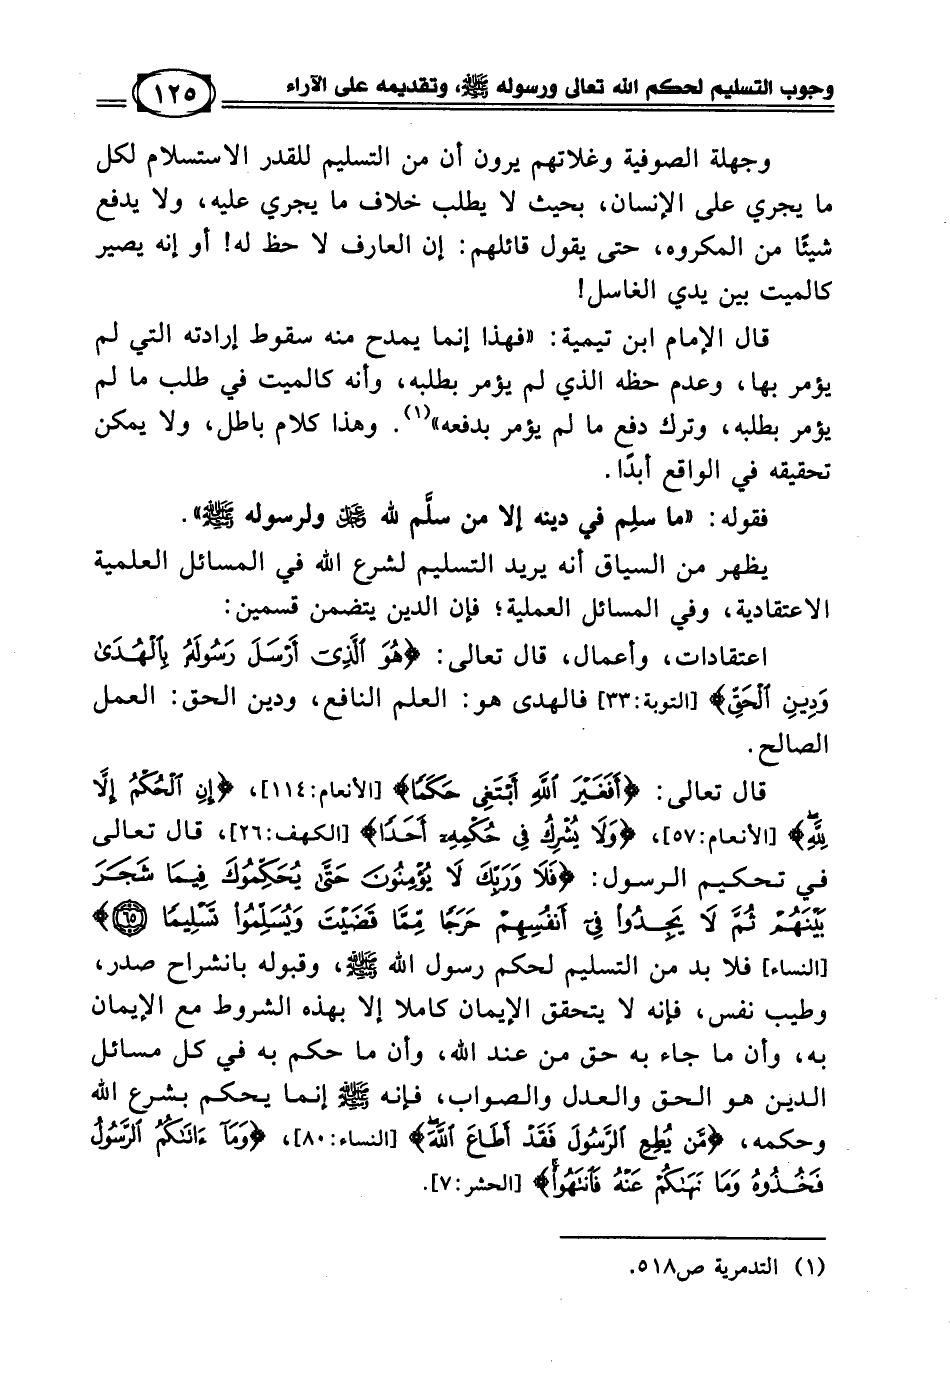 وجوب التسليم لحكم الله تعالى ورسوله ﷺ، وتقديمه على الآراء ١٢٥
وجهلة الصوفية وغلاتهم يرون أن من التسليم للقدر الاستسلام لكل
ما يجري على الإنسان، بحيث لا يطلب خلاف ما يجري عليه، ولا يدفع
شيئًا من المكروه، حتى يقول قائلهم: إن العارف لا حظ له! أو إنه يصير
كالميت بين يدي الغاسل!
قال الإمام ابن تيمية: «فهذا إنما يمدح منه سقوط إرادته التي لم
يؤمر بها، وعدم حظه الذي لم يؤمر بطلبه، وأنه كالميت في طلب ما لم
يؤمر بطلبه، وترك دفع ما لم يؤمر بدفعه»(١). وهذا كلام باطل، ولا يمكن
تحقيقه في الواقع أبدًا.
فقوله: «ما سلِم في دينه إلا من سلَّم لله ﷻ ولرسوله ﷺ».
يظهر من السياق أنه يريد التسليم لشرع الله في المسائل العلمية
الاعتقادية، وفي المسائل العملية؛ فإن الدين يتضمن قسمين:
اعتقادات، وأعمال، قال تعالى: ﴿هُوَ ٱلَّذِىٓ أَرْسَلَ رَسُولَهُۥ بِٱلْهُدَىٰ
وَدِينِ ٱلْحَقِّ﴾ [التوبة:٣٣] فالهدى هو: العلم النافع، ودين الحق: العمل
الصالح.
قال تعالى: ﴿أَفَغَيْرَ ٱللَّهِ أَبْتَغِى حَكَمًا﴾ [الأنعام:١١٤]، ﴿إِنِ ٱلْحُكْمُ إِلَّا
لِلَّهِ﴾ [الأنعام:٥٧]، ﴿وَلَا يُشْرِكُ فِى حُكْمِهِۦٓ أَحَدًا﴾ [الكهف:٢٦]، قال تعالى
في تحكيم الرسول: ﴿فَلَا وَرَبِّكَ لَا يُؤْمِنُونَ حَتَّىٰ يُحَكِّمُوكَ فِيمَا شَجَرَ
بَيْنَهُمْ ثُمَّ لَا يَجِدُوا۟ فِىٓ أَنفُسِهِمْ حَرَجًا مِّمَّا قَضَيْتَ وَيُسَلِّمُوا۟ تَسْلِيمًا ۝٦٥﴾
[النساء] فلا بد من التسليم لحكم رسول الله ﷺ، وقبوله بانشراح صدر،
وطيب نفس، فإنه لا يتحقق الإيمان كاملا إلا بهذه الشروط مع الإيمان
به، وأن ما جاء به حق من عند الله، وأن ما حكم به في كل مسائل
الدين هو الحق والعدل والصواب، فإنه ﷺ إنما يحكم بشرع الله
وحكمه، ﴿مَّن يُطِعِ ٱلرَّسُولَ فَقَدْ أَطَاعَ ٱللَّهَ﴾ [النساء:٨٠]، ﴿وَمَآ ءَاتَىٰكُمُ ٱلرَّسُولُ
فَخُذُوهُ وَمَا نَهَىٰكُمْ عَنْهُ فَٱنتَهُوا۟﴾ [الحشر:٧].
(١) التدمرية ص٥١٨.